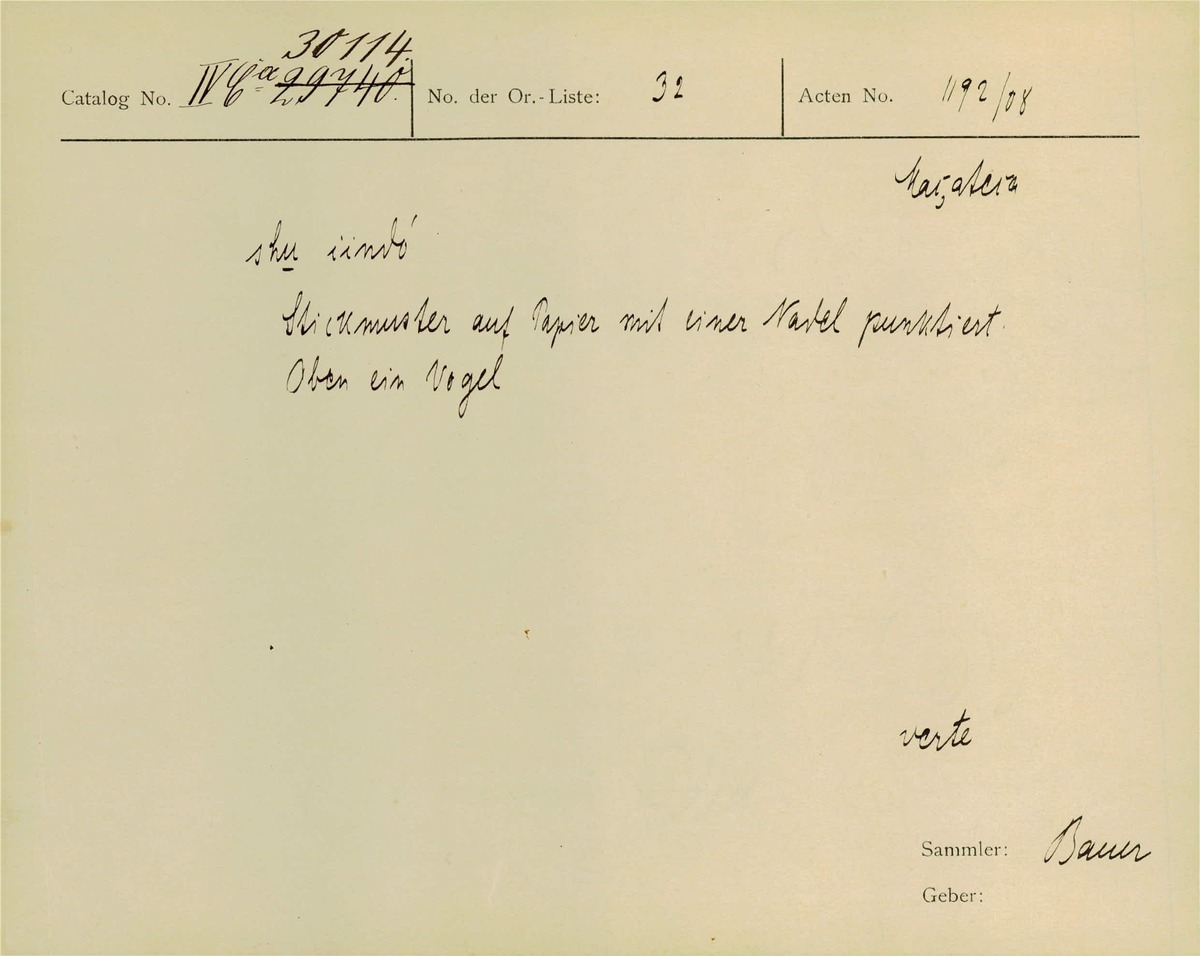 30114.
Catalog No. IV Ca 29740. No. der Or.-Liste: 32 Acten No. 1192/08
Maz̧ateca
shu̲ iindó
Stickmuster auf Papier mit einer Nadel punktiert.
Oben ein Vogel
verte
Sammler: Bauer
Geber: